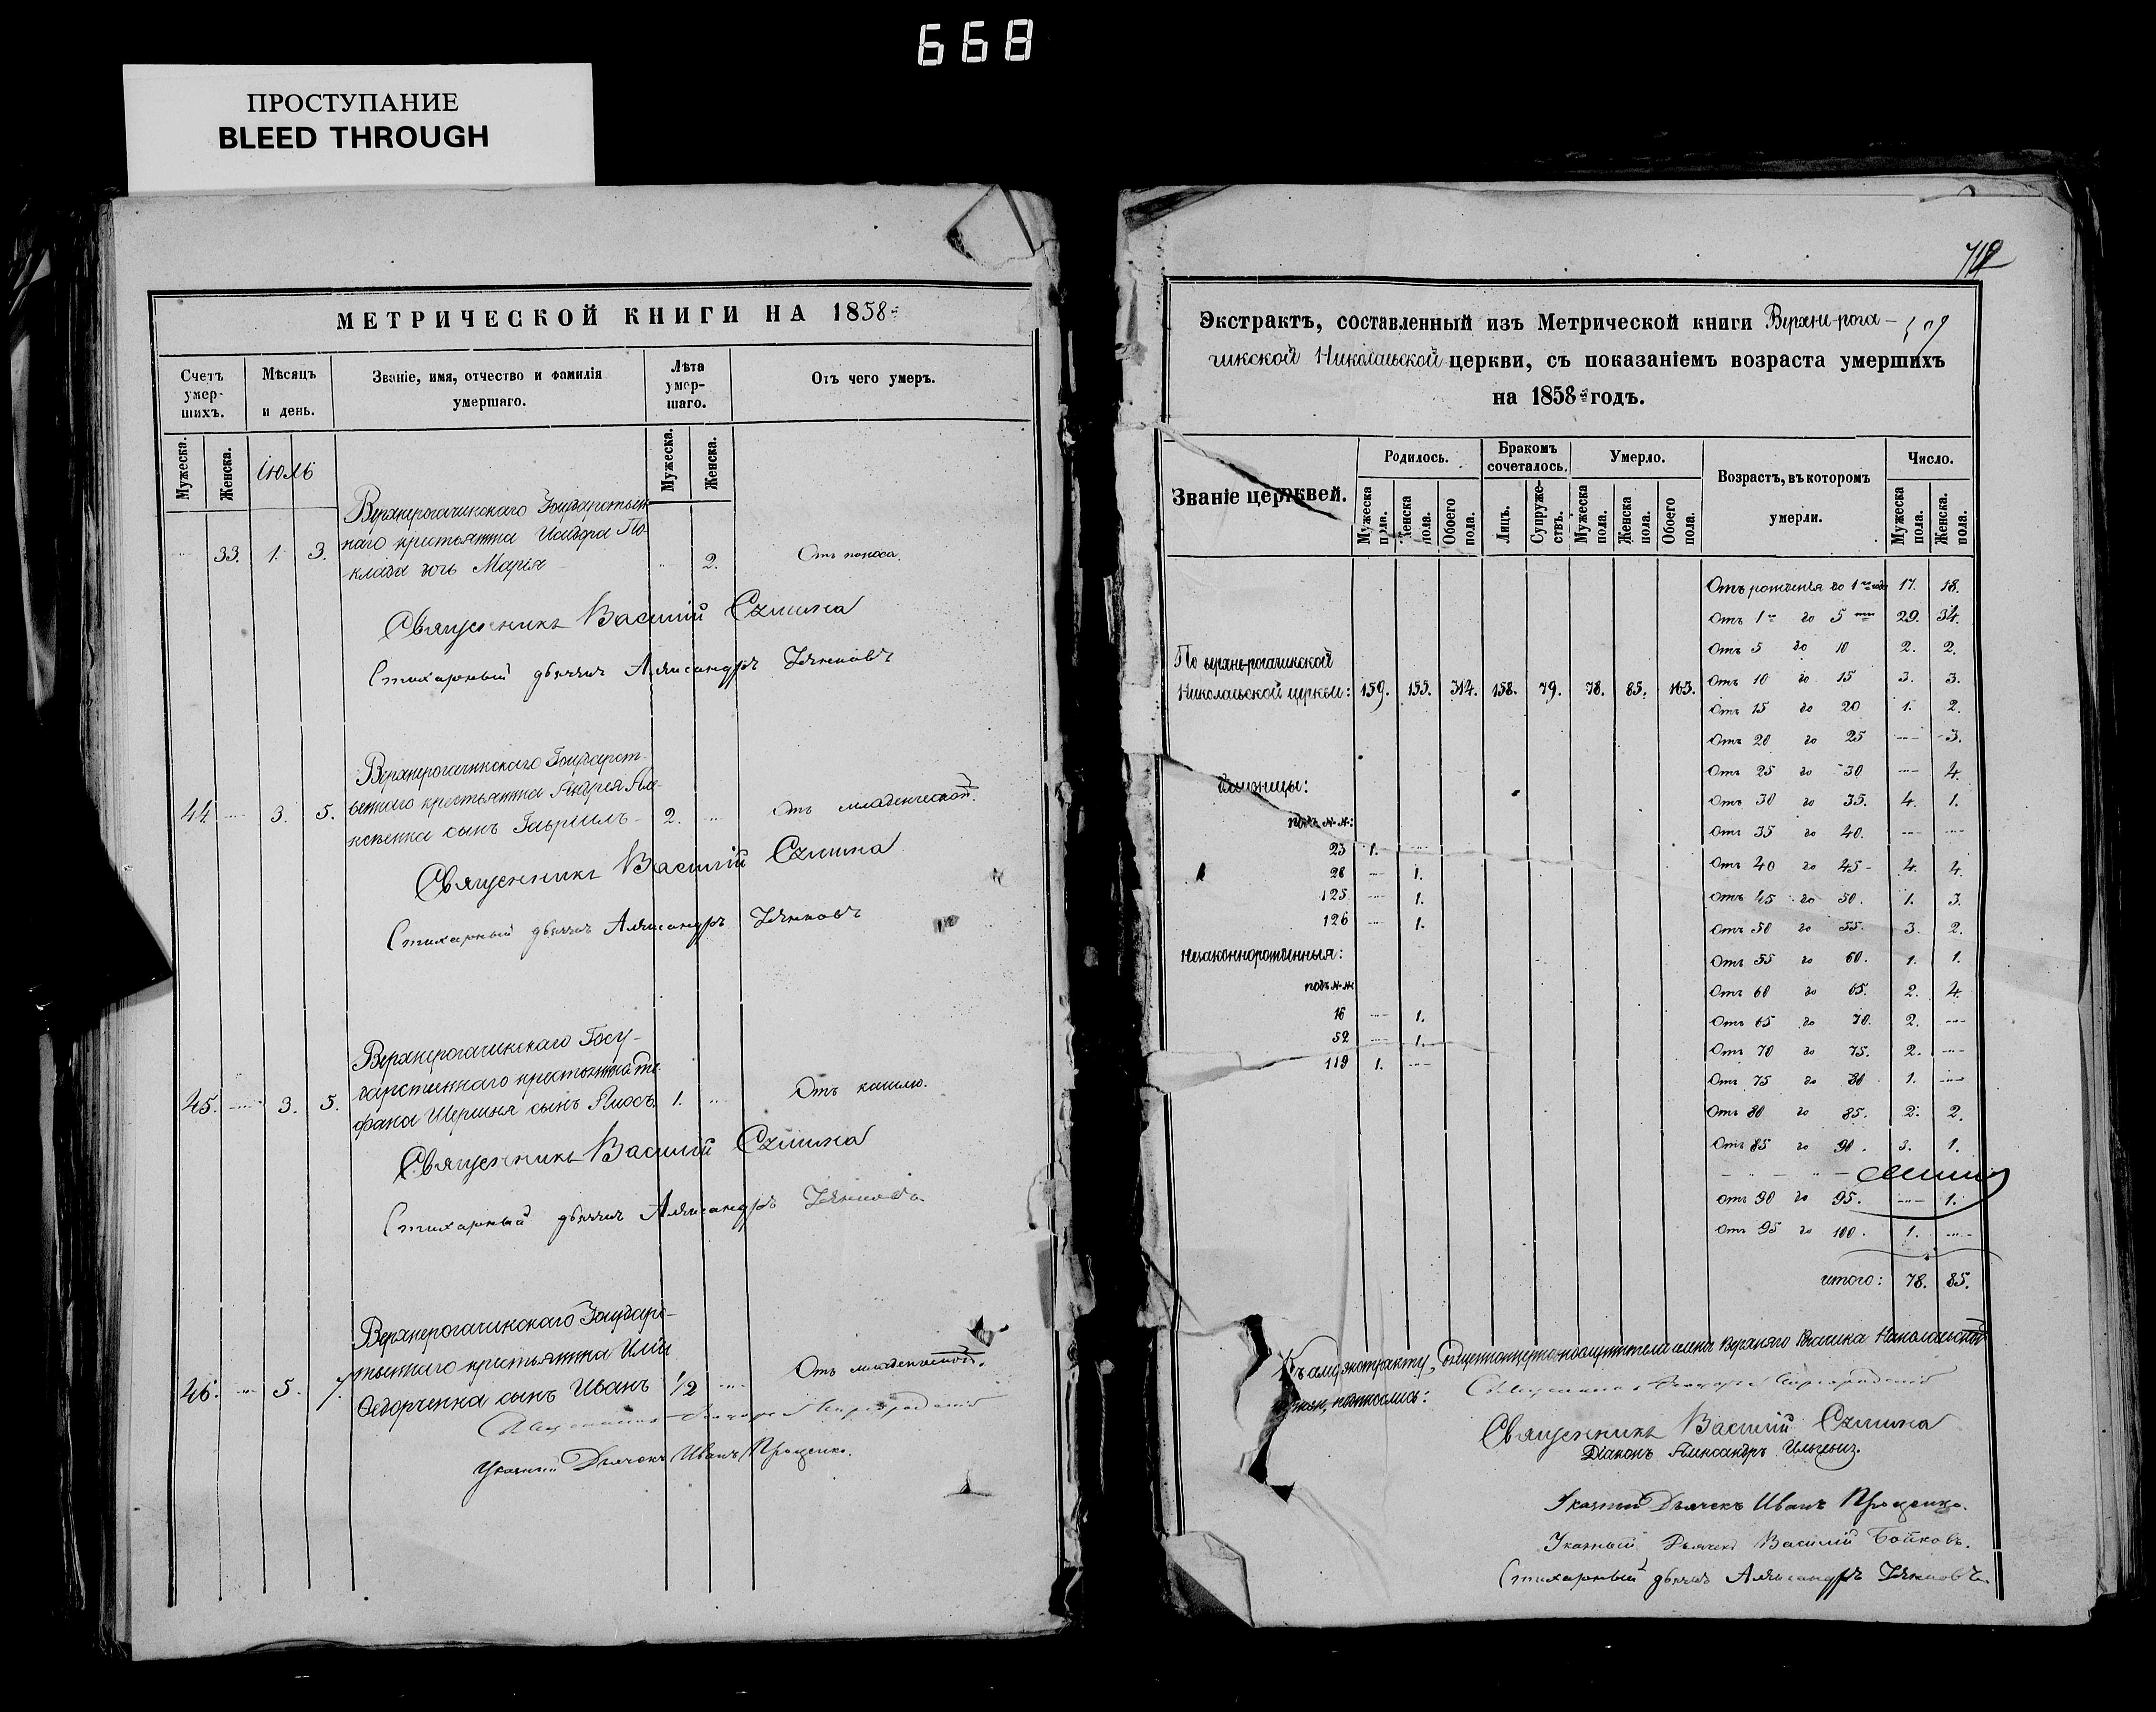 668
ПРОСТУПАНИЕ
BLEED THROUGH
МЕТРИЧЕСКОЙ КНИГИ НА 1858
Счетъ умер- шихъ.
Мѣсяцъ и день.
Званіе, имя, отчество и фамилія умершаго.
Лѣта умер- шаго.
Отъ чего умеръ.
Мужеска.
Женска.
Іюль
Мужеска.
Женска.
Верхнерогачинскаго Государствен
наго крестьянина Исидора По-
33. 1. 3. клада дочь Марія 2. Отъ поноса.
Священникъ Василій
Стихарный дьячекъ Александръ
Верхнерогачинскаго Государст-
веннаго крестьянина Андрея
44. 3. 5. сынъ Гавріилъ 2. Отъ младенческой.
Священникъ Василій
Стихарный дьячекъ Александръ
Верхнерогачинскаго Госу-
дарственнаго крестьянина
45. 3. 5. фана Шершня сынъ 1. Отъ кашлю.
Священникъ Василій
Стихарный дьячекъ Александръ
Верхнерогачинскаго Государс-
твеннаго крестьянина Иліи
46. 5. 7. Ѳедорченка сынъ Иванъ 1/2 Отъ младенческой.
Священникъ
Указный Дьячекъ Иванъ Проценко.
712
Экстрактъ, составленный изъ Метрической книги Верхне-рога-
чикской Николаевской церкви, съ показаніемъ возраста умершихъ
на 1858 годъ.
Званіе церквей.
Родилось.
Бракомъ сочеталось.
Умерло.
Возрастъ, въ которомъ умерли.
Число.
Мужеска пола.
Женска пола.
Обоего пола.
Лицъ.
Супруже- ствъ.
Мужеска пола.
Женска пола.
Обоего пола.
Мужеска пола.
Женска пола.
Отъ рожденія до 1 года 17. 18.
Отъ 1 до 5 29. 34.
Отъ 5 до 10 2. 2.
По верхне-рогачикской
Николаевской церкви: 159. 155. 314. 158. 79. 78. 85. 163.
Отъ 10 до 15 3. 3.
Отъ 15 до 20 1. 2.
Отъ 20 до 25 3.
Отъ 25 до 30 4.
Близницы:
Отъ 30 до 35. 4. 1.
подъ №№:
Отъ 35 до 40.
23 1.
Отъ 40 до 45 4. 4.
28 1.
125 1.
Отъ 45 до 50. 1. 3.
126 1.
Отъ 50 до 55. 3. 2.
незаконнорожденныя:
Отъ 55 до 60. 1. 1.
подъ №№
Отъ 60 до 65. 2. 4.
16 1.
Отъ 65 до 70. 2.
52 1.
Отъ 70 до 75. 2.
119 1.
Отъ 75 до 80 1.
Отъ 80 до 85. 2. 2.
Отъ 85 до 90. 3. 1.
отъ 90 до 95. 1.
Отъ 95 до 100. 1.
итого: 78. 85.
Священникъ
Священникъ Василій
Діаконъ Александръ
Указный Дьячекъ Иванъ Проценко.
Указный Дьячекъ Василій Бойковъ.
Стихарный дьячекъ Александръ